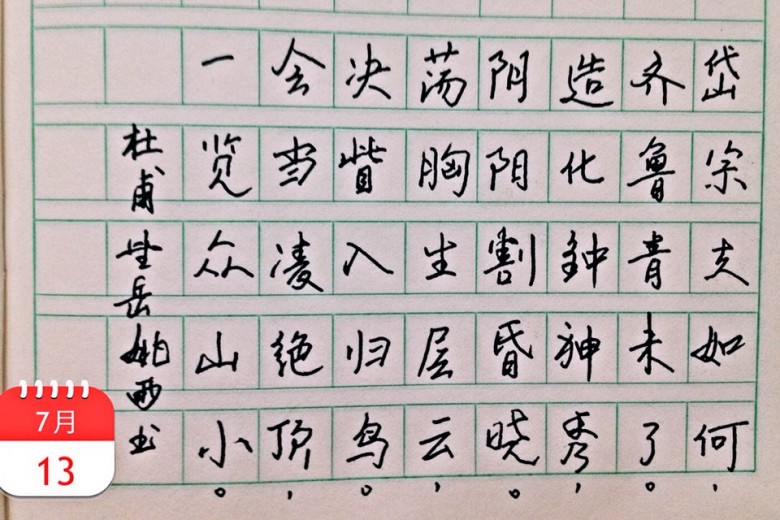 岱宗夫如何，
齐鲁青未了。
造化钟神秀，
阴阳割昏晓。
荡胸生层云，
决眥入归鸟。
会当凌绝顶，
一览众山小。
杜甫望岳姚书
7月
13